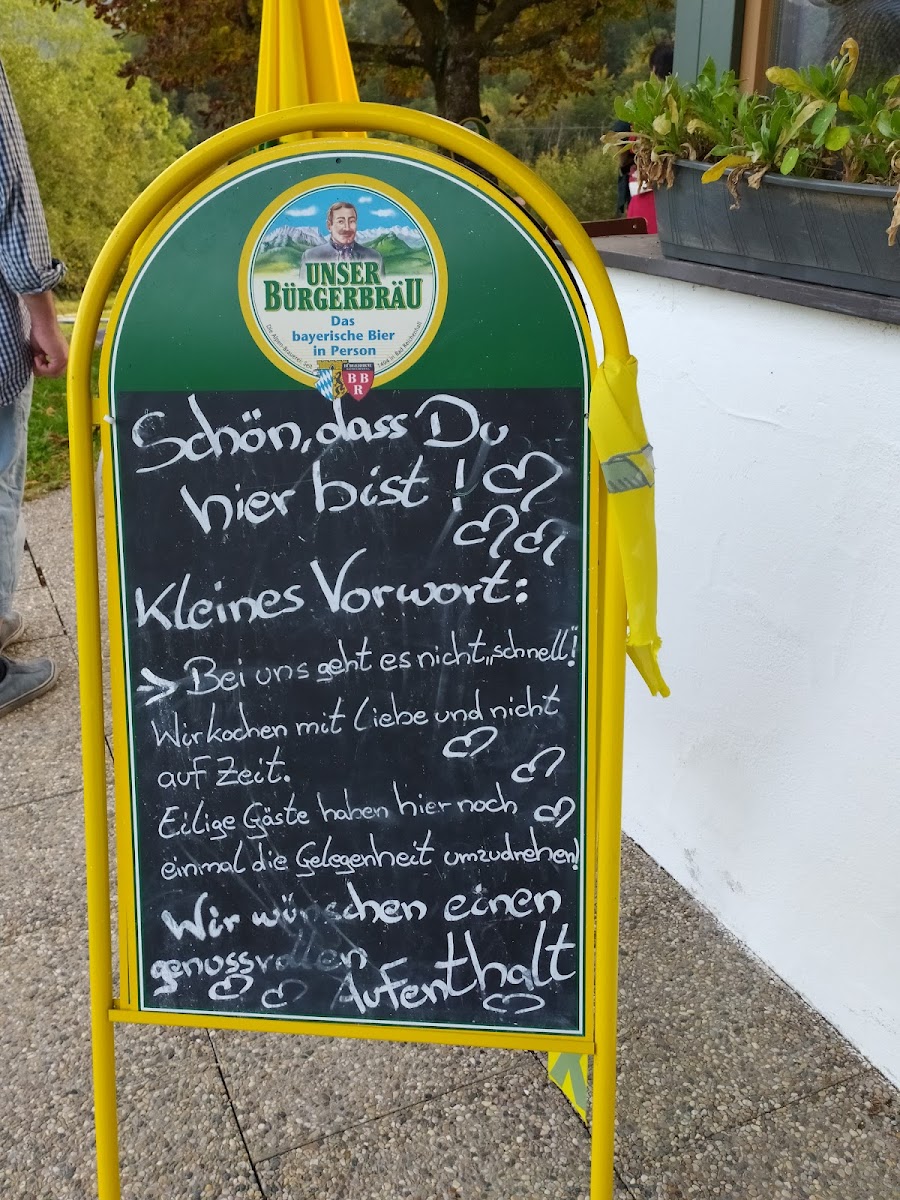 UNSER
BÜRGERBRÄU
Das
bayerische Bier
in Person
Die Alpen-Brauerei Seit 1494 in Bad Reichenhall
BÜRGERBRÄU
B B
R
Schön, dass Du
hier bist!
Kleines Vorwort:
> Bei uns geht es nicht „schnell"!
Wir kochen mit Liebe und nicht
auf Zeit.
Eilige Gäste haben hier noch
einmal die Gelegenheit umzudrehen!
Wir wünschen einen
genussvollen
Aufenthalt